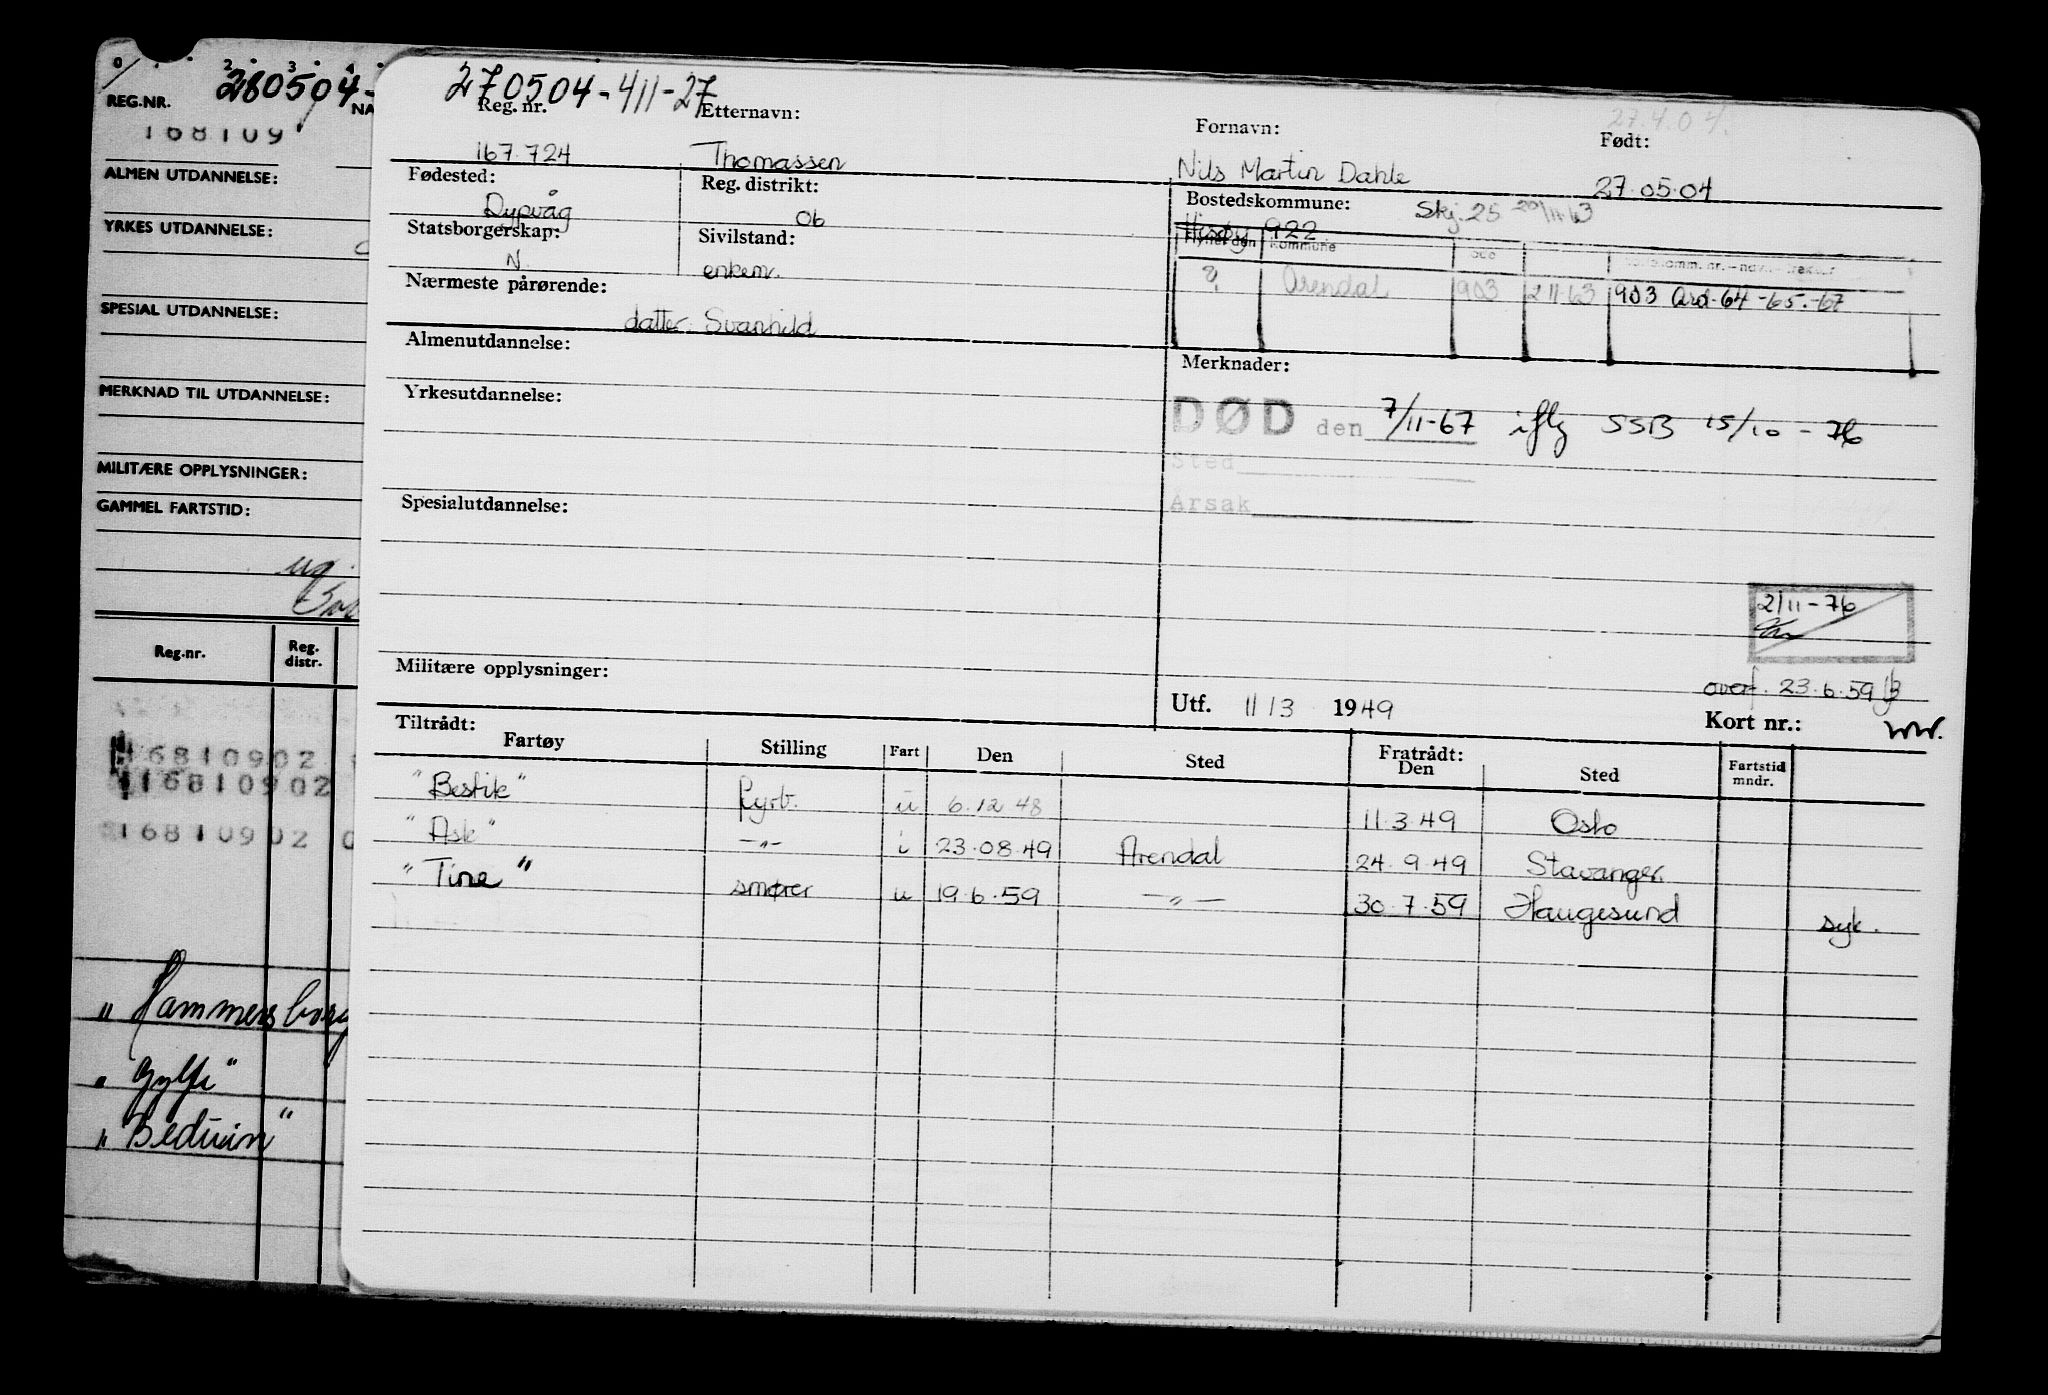 0 2 3 4
280504-
REG.NR. NA
168109
ALMEN UTDANNELSE:
YRKES UTDANNELSE:
SPESIAL UTDANNELSE:
MERKNAD TIL UTDANNELSE:
MILITÆRE OPPLYSNINGER:
GAMMEL FARTSTID:
Reg.nr. Reg. distr.
16810902
16810902
16810902 0
" Hammersborg
" Gylfe"
" Beduin"
270504-411-27
27.4.04.
Reg. nr. Etternavn: Fornavn: Født:
167.724 Thomassen Nils Martin Dahle 27.05.04
Fødested: Reg. distrikt: Bostedskommune: Skj. 25 20/11-63
Dypvåg 06 Hisøy 922
Statsborgerskap: Sivilstand: Flyttet den Kommune
N. enkem. ? Arendal 903 2 11-63 903 Ard-64-65.-67
Nærmeste pårørende:
datter Svanhild
Almenutdannelse: Merknader:
Yrkesutdannelse:
DØD den 7/11-67 iflg SSB 15/10-76
Sted
Årsak
Spesialutdannelse:
2/11-76
Militære opplysninger:
overf. 23.6.59
Utf. 11/3 1949 Kort nr.:
Tiltrådt: Fratrådt:
Fartøy Stilling Fart Den Sted Den Sted Fartstid mndr.
"Bestik" fyrb. u 6.12 48 11.3.49 Oslo
"Ask" -"- i 23.08.49 Arendal 24.9.49 Stavanger.
"Tine" smører u 19.6.59 -"- 30.7.59 Haugesund syk.